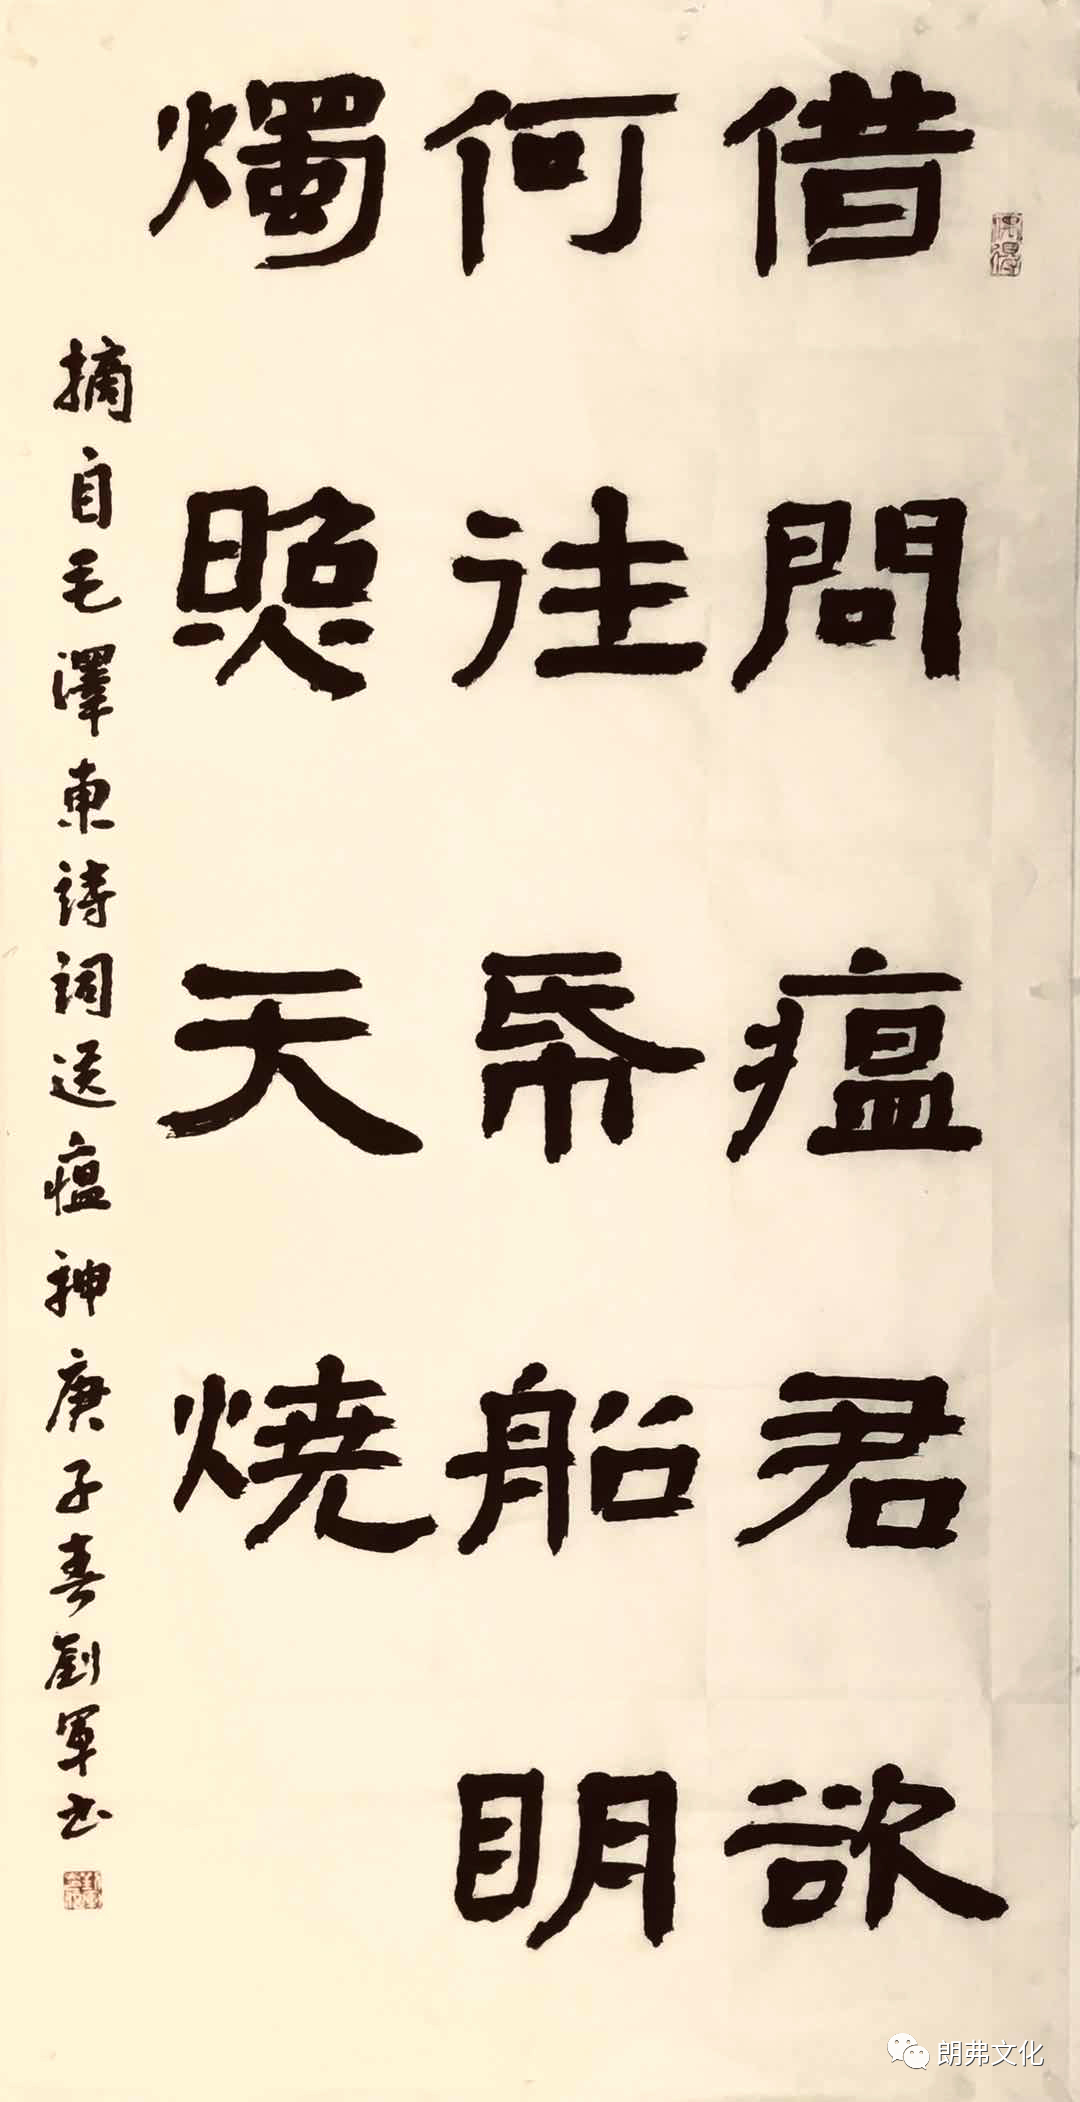 借問瘟君欲
何往帋船眀
燭照天燒
摘自毛澤東詩詞送瘟神庚子春劉軍书
朗弗文化